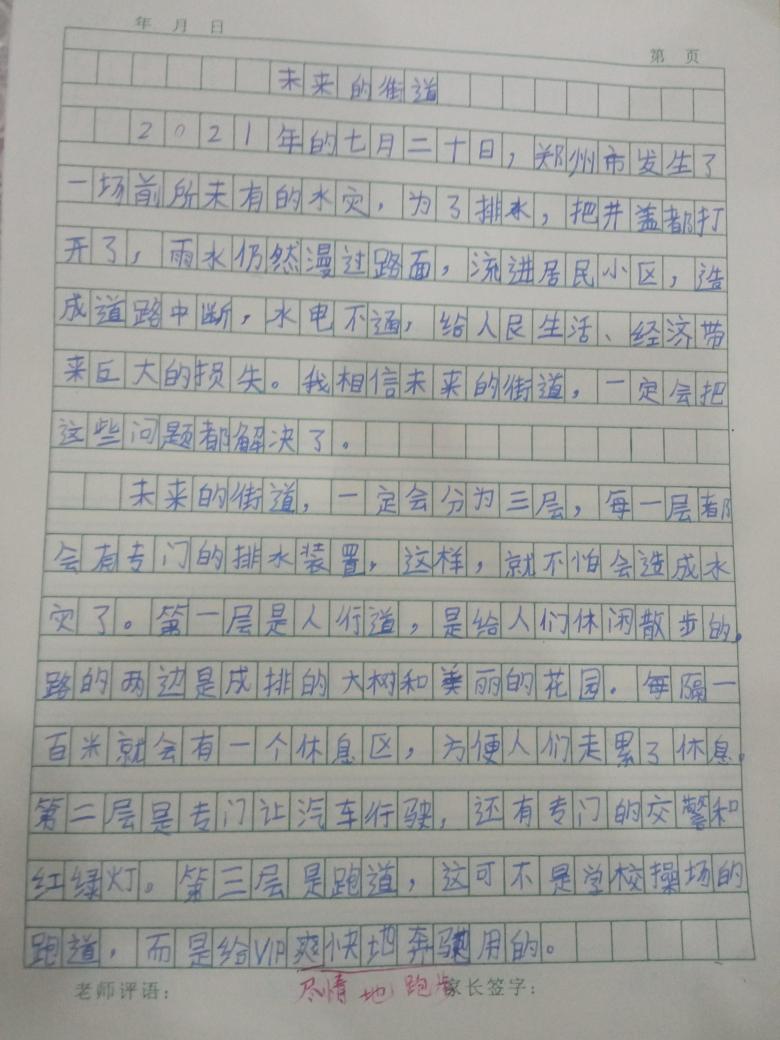 年 月 日
第 页
未来的街道
2021年的七月二十日，郑州市发生了
一场前所未有的水灾，为了排水，把井盖都打
开了，雨水仍然漫过路面，流进居民小区，造
成道路中断，水电不通，给人民生活、经济带
来巨大的损失。我相信未来的街道，一定会把
这些问题都解决了。
未来的街道，一定会分为三层，每一层都
会有专门的排水装置，这样，就不怕会造成水
灾了。第一层是人行道，是给人们休闲散步的。
路的两边是成排的大树和美丽的花园。每隔一
百米就会有一个休息区，方便人们走累了休息。
第二层是专门让汽车行驶，还有专门的交警和
红绿灯。第三层是跑道，这可不是学校操场的
跑道，而是给VIP爽快地奔驶用的。
尽情地跑步
老师评语： 家长签字：